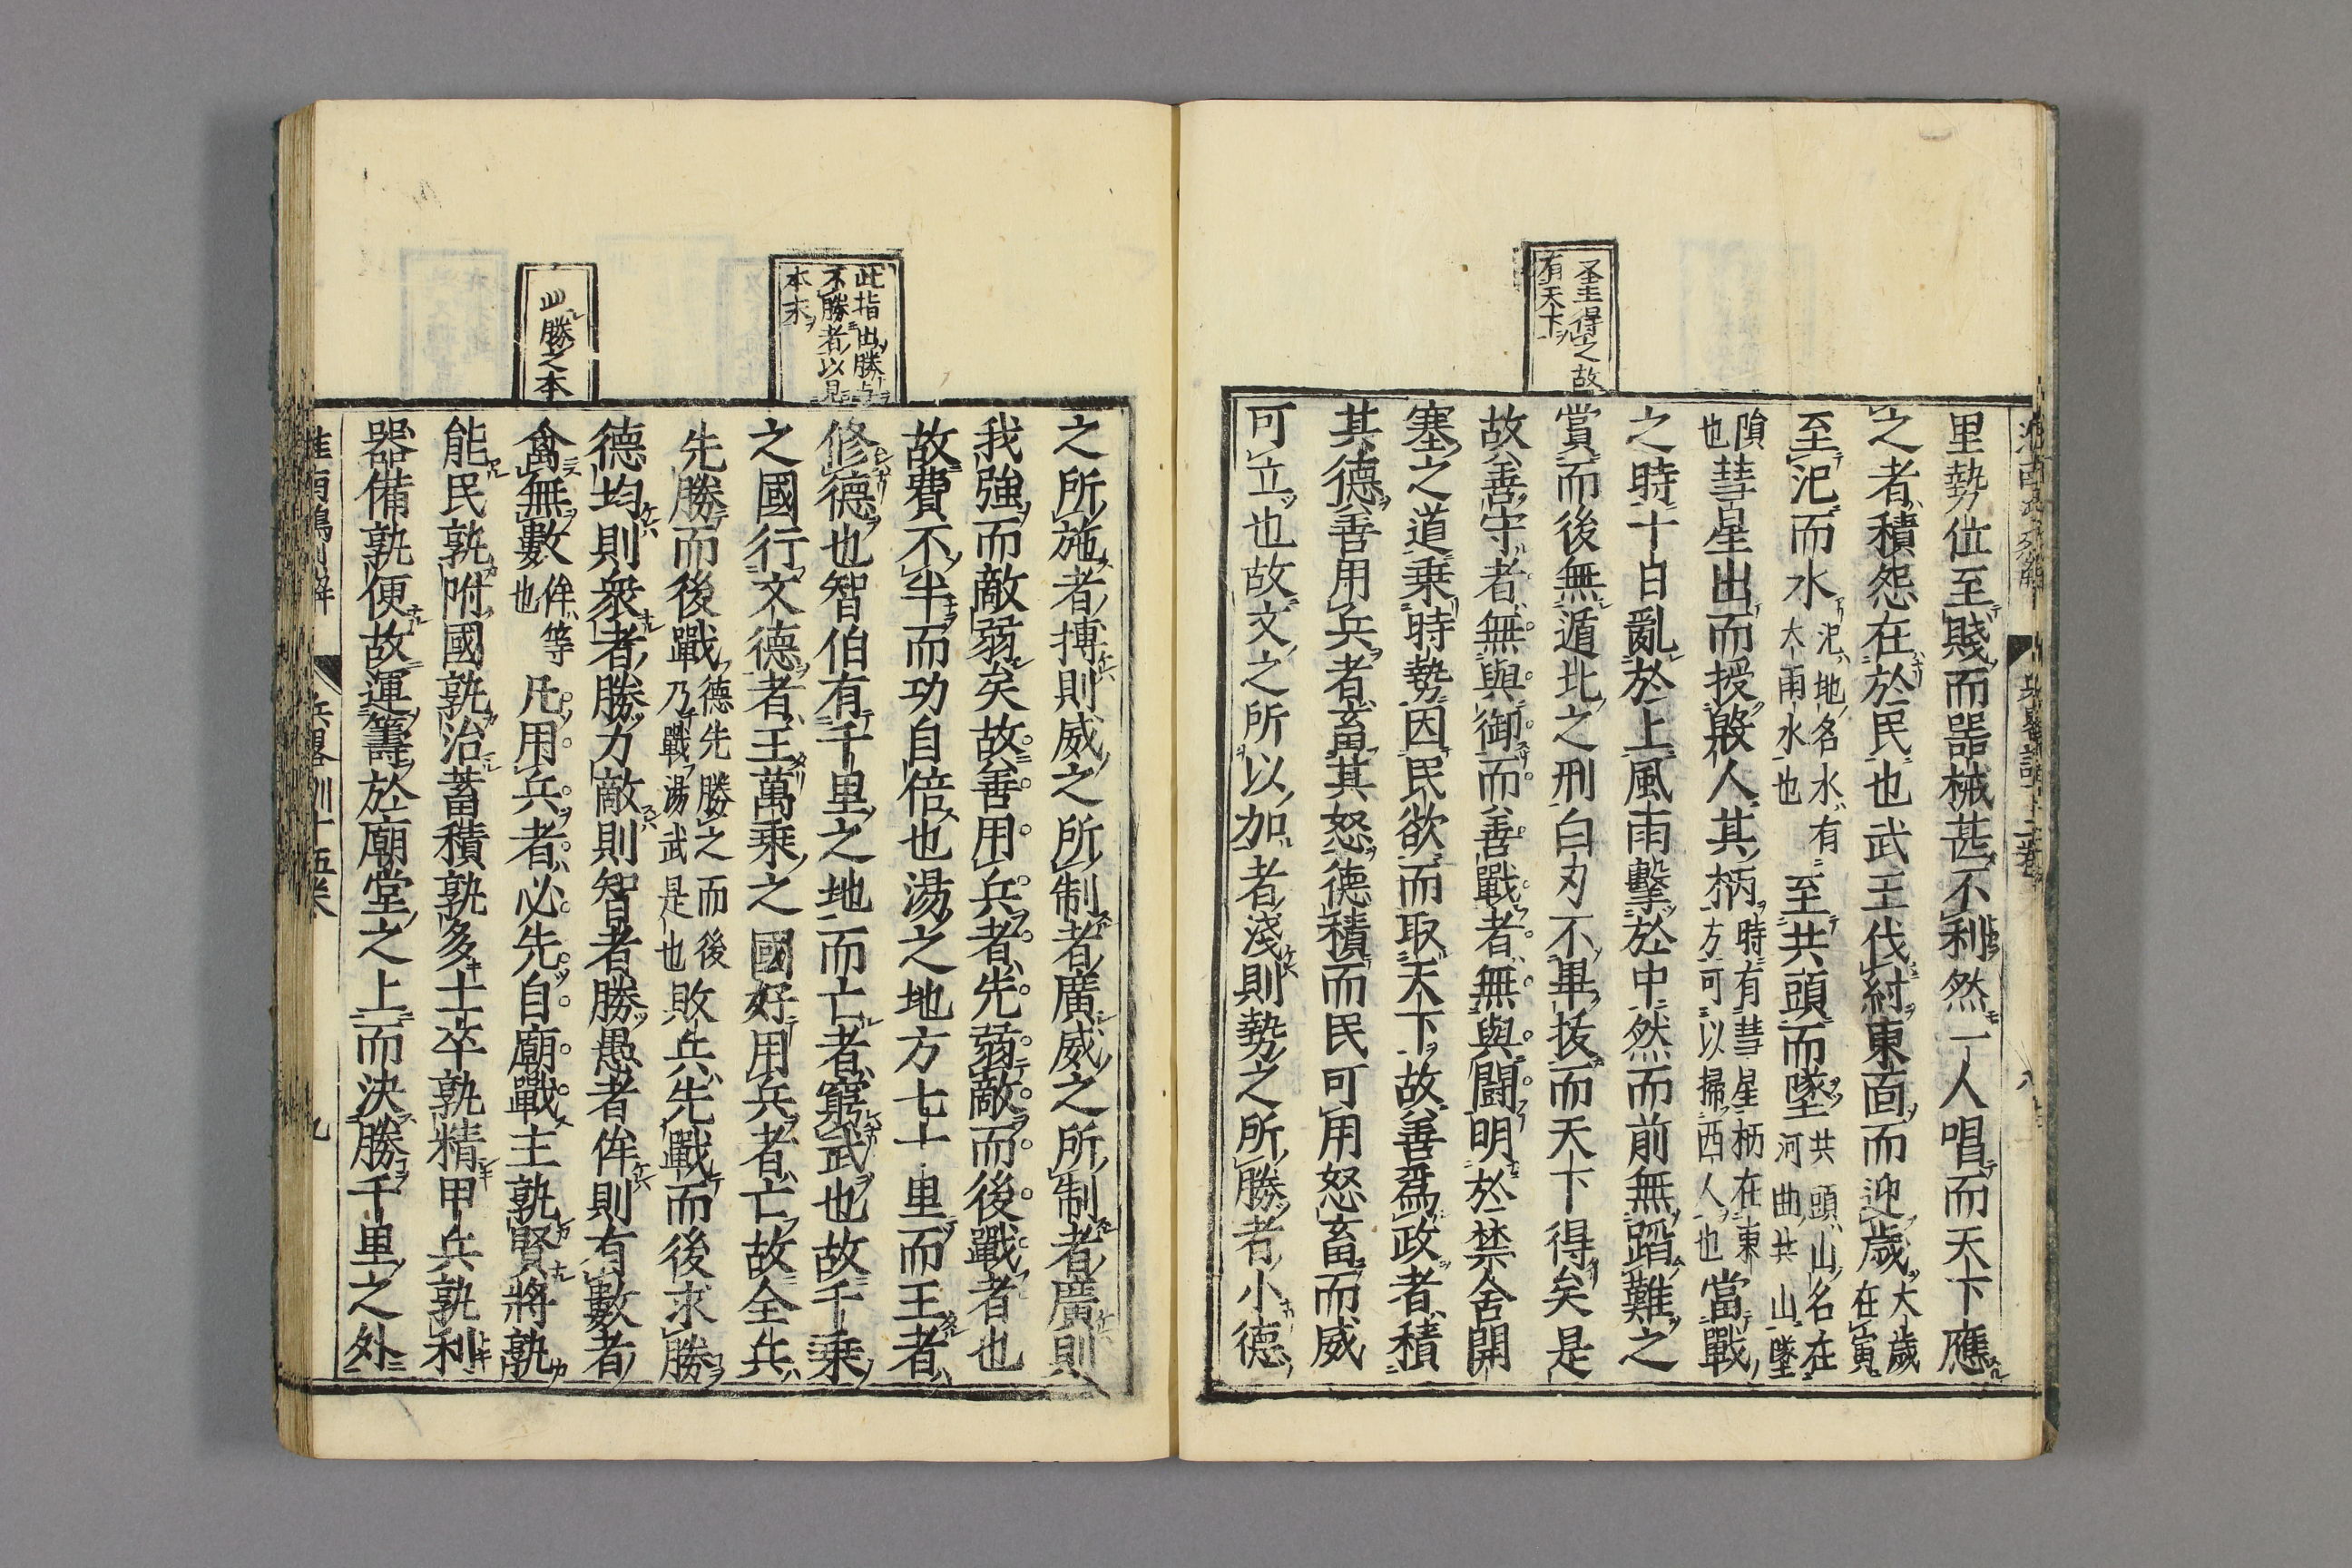 里勢位至賤而器械甚不利然一人唱而天下應
之者積怨在於民也武王伐紂東面而迎歲大歲
在寅
至汜而水汜地名水有
大雨水也至共頭而墜共頭山名在
河曲共山墜
隕
也彗星出而授殷人其柄時有彗星柄在東
方可以掃西人也當戰
之時十日亂於上風雨擊於中然而前無蹈難之
賞而後無遁北之刑白刃不畢拔而天下得矣是
故善守者無與御而善戰者無與鬪明於禁舍開
塞之道乗時勢因民欲而取天下故善爲政者積
其德善用兵者畜其怒德積而民可用怒畜而威
可立也故文之所以加者淺則勢之所勝者小德
得之故
有天下
之所施者博則威之所制者廣威之所制者廣則
我強而敵弱矣故善用兵者先弱敵而後戰者也
故費不半而功自倍也湯之地方七十里而王者
修德也智伯有千里之地而亡者窮武也故千乗
之國行文德者王萬乗之國好用兵者亡故全兵
先勝而後戰德先勝之而後
乃戰湯武是也敗兵先戰而後求勝
德均則衆者勝力敵則智者勝愚者侔則有數者
禽無數侔等
也凡用兵者必先自廟戰主孰賢將孰
能民孰附國孰治蓄積孰多士卒孰精甲兵孰利
器備孰便故運籌於廟堂之上而決勝千里之外
此指出勝與
不勝者以見
本末
勝之本
兵畧訓十五卷
九